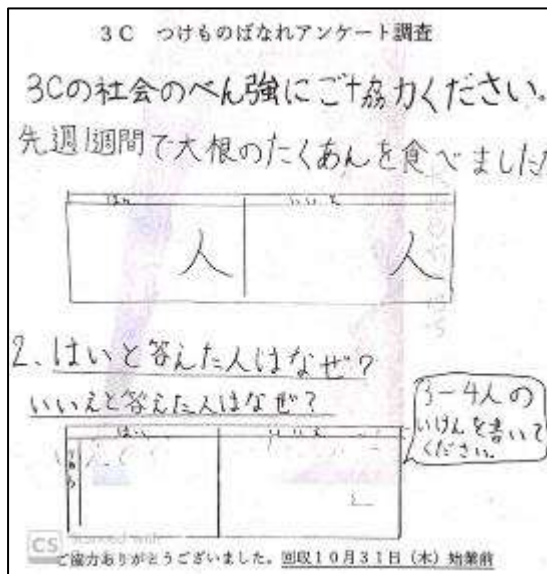 3C つけものばなれアンケート調査
3Cの社会のべん強にご協力ください。
先週1週間で大根のたくあんを食べました
はい いいえ
人 人
2、はいと答えた人はなぜ?
いいえと答えた人はなぜ?
3-4人の
いけんを書いて
ください。
はい いいえ
CS Scanned with
ご協力ありがとうございました。回収10月31日(木)始業前